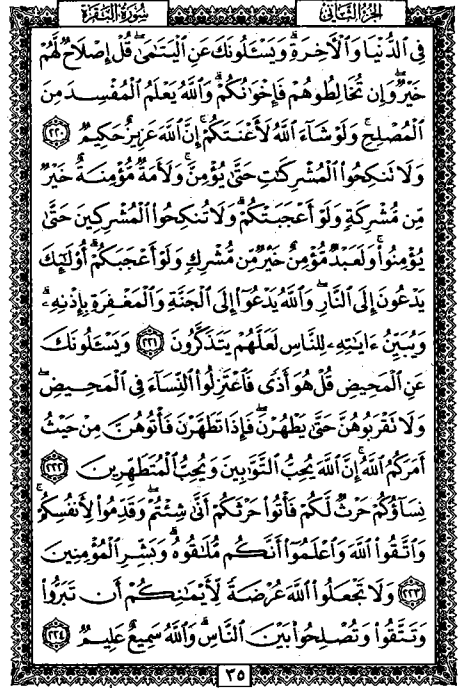 سُورَةُ البَقَرَةِ الجُزْءُ الثَّانِي
فِي ٱلدُّنْيَا وَٱلْأَخِرَةِۗ وَيَسْـَٔلُونَكَ عَنِ ٱلْيَتَٰمَىٰۖ قُلْ إِصْلَاحٌ لَّهُمْ
خَيْرٌۖ وَإِن تُخَالِطُوهُمْ فَإِخْوَٰنُكُمْۚ وَٱللَّهُ يَعْلَمُ ٱلْمُفْسِدَ مِنَ
ٱلْمُصْلِحِۚ وَلَوْ شَآءَ ٱللَّهُ لَأَعْنَتَكُمْۚ إِنَّ ٱللَّهَ عَزِيزٌ حَكِيمٌ ٢٢٠
وَلَا تَنكِحُوا۟ ٱلْمُشْرِكَٰتِ حَتَّىٰ يُؤْمِنَّۚ وَلَأَمَةٌ مُّؤْمِنَةٌ خَيْرٌ
مِّن مُّشْرِكَةٍ وَلَوْ أَعْجَبَتْكُمْۗ وَلَا تُنكِحُوا۟ ٱلْمُشْرِكِينَ حَتَّىٰ
يُؤْمِنُوا۟ۚ وَلَعَبْدٌ مُّؤْمِنٌ خَيْرٌ مِّن مُّشْرِكٍ وَلَوْ أَعْجَبَكُمْۗ أُو۟لَٰٓئِكَ
يَدْعُونَ إِلَى ٱلنَّارِۖ وَٱللَّهُ يَدْعُوٓا۟ إِلَى ٱلْجَنَّةِ وَٱلْمَغْفِرَةِ بِإِذْنِهِۦۖ
وَيُبَيِّنُ ءَايَٰتِهِۦ لِلنَّاسِ لَعَلَّهُمْ يَتَذَكَّرُونَ ٢٢١ وَيَسْـَٔلُونَكَ
عَنِ ٱلْمَحِيضِۖ قُلْ هُوَ أَذًى فَٱعْتَزِلُوا۟ ٱلنِّسَآءَ فِي ٱلْمَحِيضِۖ
وَلَا تَقْرَبُوهُنَّ حَتَّىٰ يَطْهُرْنَۖ فَإِذَا تَطَهَّرْنَ فَأْتُوهُنَّ مِنْ حَيْثُ
أَمَرَكُمُ ٱللَّهُۚ إِنَّ ٱللَّهَ يُحِبُّ ٱلتَّوَّٰبِينَ وَيُحِبُّ ٱلْمُتَطَهِّرِينَ ٢٢٢
نِسَآؤُكُمْ حَرْثٌ لَّكُمْ فَأْتُوا۟ حَرْثَكُمْ أَنَّىٰ شِئْتُمْۖ وَقَدِّمُوا۟ لِأَنفُسِكُمْۚ
وَٱتَّقُوا۟ ٱللَّهَ وَٱعْلَمُوٓا۟ أَنَّكُم مُّلَٰقُوهُۗ وَبَشِّرِ ٱلْمُؤْمِنِينَ
٢٢٣ وَلَا تَجْعَلُوا۟ ٱللَّهَ عُرْضَةً لِّأَيْمَٰنِكُمْ أَن تَبَرُّوا۟
وَتَتَّقُوا۟ وَتُصْلِحُوا۟ بَيْنَ ٱلنَّاسِۗ وَٱللَّهُ سَمِيعٌ عَلِيمٌ ٢٢٤
٣٥